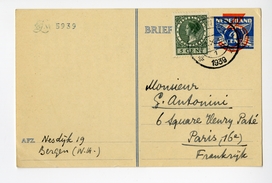 5939
BRIEF
NEDERLAND
5 CENT
1939
Monsieur
G. Antonini
6 Square Henry Paté
Paris (16e)
Frankrijk
AFZ. Nesdijk 19
Bergen (N.H.)